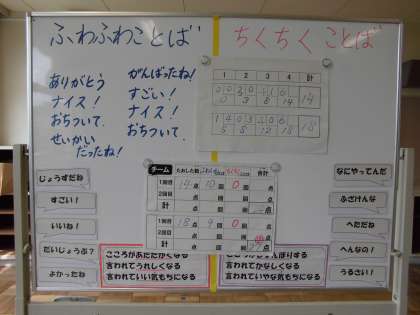 ふわふわことば
ちくちくことば
ありがとう
ナイス！
おちついて。
せいかい
だったね！
がんばったね！
すごい！
ナイス！
おちついて。
1 2 3 4 計
14
18
チーム
たおした数
合計
1回目 14点 10個 0個 点
2回目 点 個 個 点
計 点
1回目 18点 9個 0個 点
2回目 点 個 個 点
計 点
じょうずだね
すごい！
いいね！
だいじょうぶ？
よかったね
なにやってんだ
ふざけんな
へただね
へんなの！
うるさい！
こころがあたたかくなる
言われてうれしくなる
言われていい気もちになる
言われてかなしくなる
言われていやな気もちになる